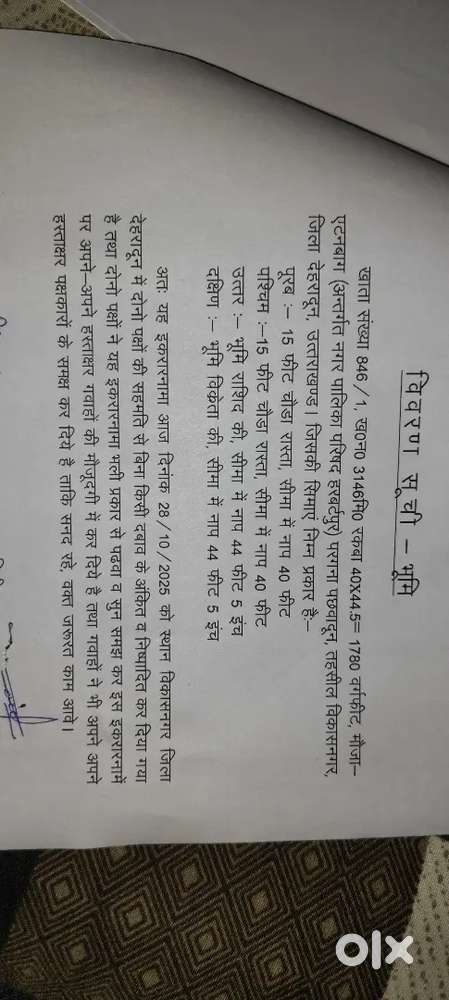 विवरण सूची – भूमि
खाता संख्या 846/1, ख0न0 3146मि0 रकबा 40X44.5= 1780 वर्गफीट, मौजा–
एटनबाग (अन्तर्गत नगर पालिका परिषद हरबर्टपुर) परगना पछवादून, तहसील विकासनगर,
जिला देहरादून, उत्तराखण्ड। जिसकी सिमाएं निम्न प्रकार है:–
पूरब :– 15 फीट चौडा रास्ता, सीमा में नाप 40 फीट
पश्चिम :–15 फीट चौडा रास्ता, सीमा में नाप 40 फीट
उत्तर :– भूमि राशिद की, सीमा में नाप 44 फीट 5 इंच
दक्षिण :– भूमि विक्रेता की, सीमा में नाप 44 फीट 5 इंच
अतः यह इकरारनामा आज दिनांक 28/10/2025 को स्थान विकासनगर जिला
देहरादून में दोनो पक्षों की सहमति से बिना किसी दबाव के अंकित व निष्पादित कर दिया गया
है तथा दोनो पक्षों ने यह इकरारनामा भली प्रकार से पढवा व सुन समझ कर इस इकरारनामें
पर अपने–अपने हस्ताक्षर गवाहों की मौजूदगी में कर दिये है तथा गवाहों ने भी अपने अपने
हस्ताक्षर पक्षकारों के समक्ष कर दिये है ताकि सनद रहे, वक्त जरूरत काम आवे।
olx